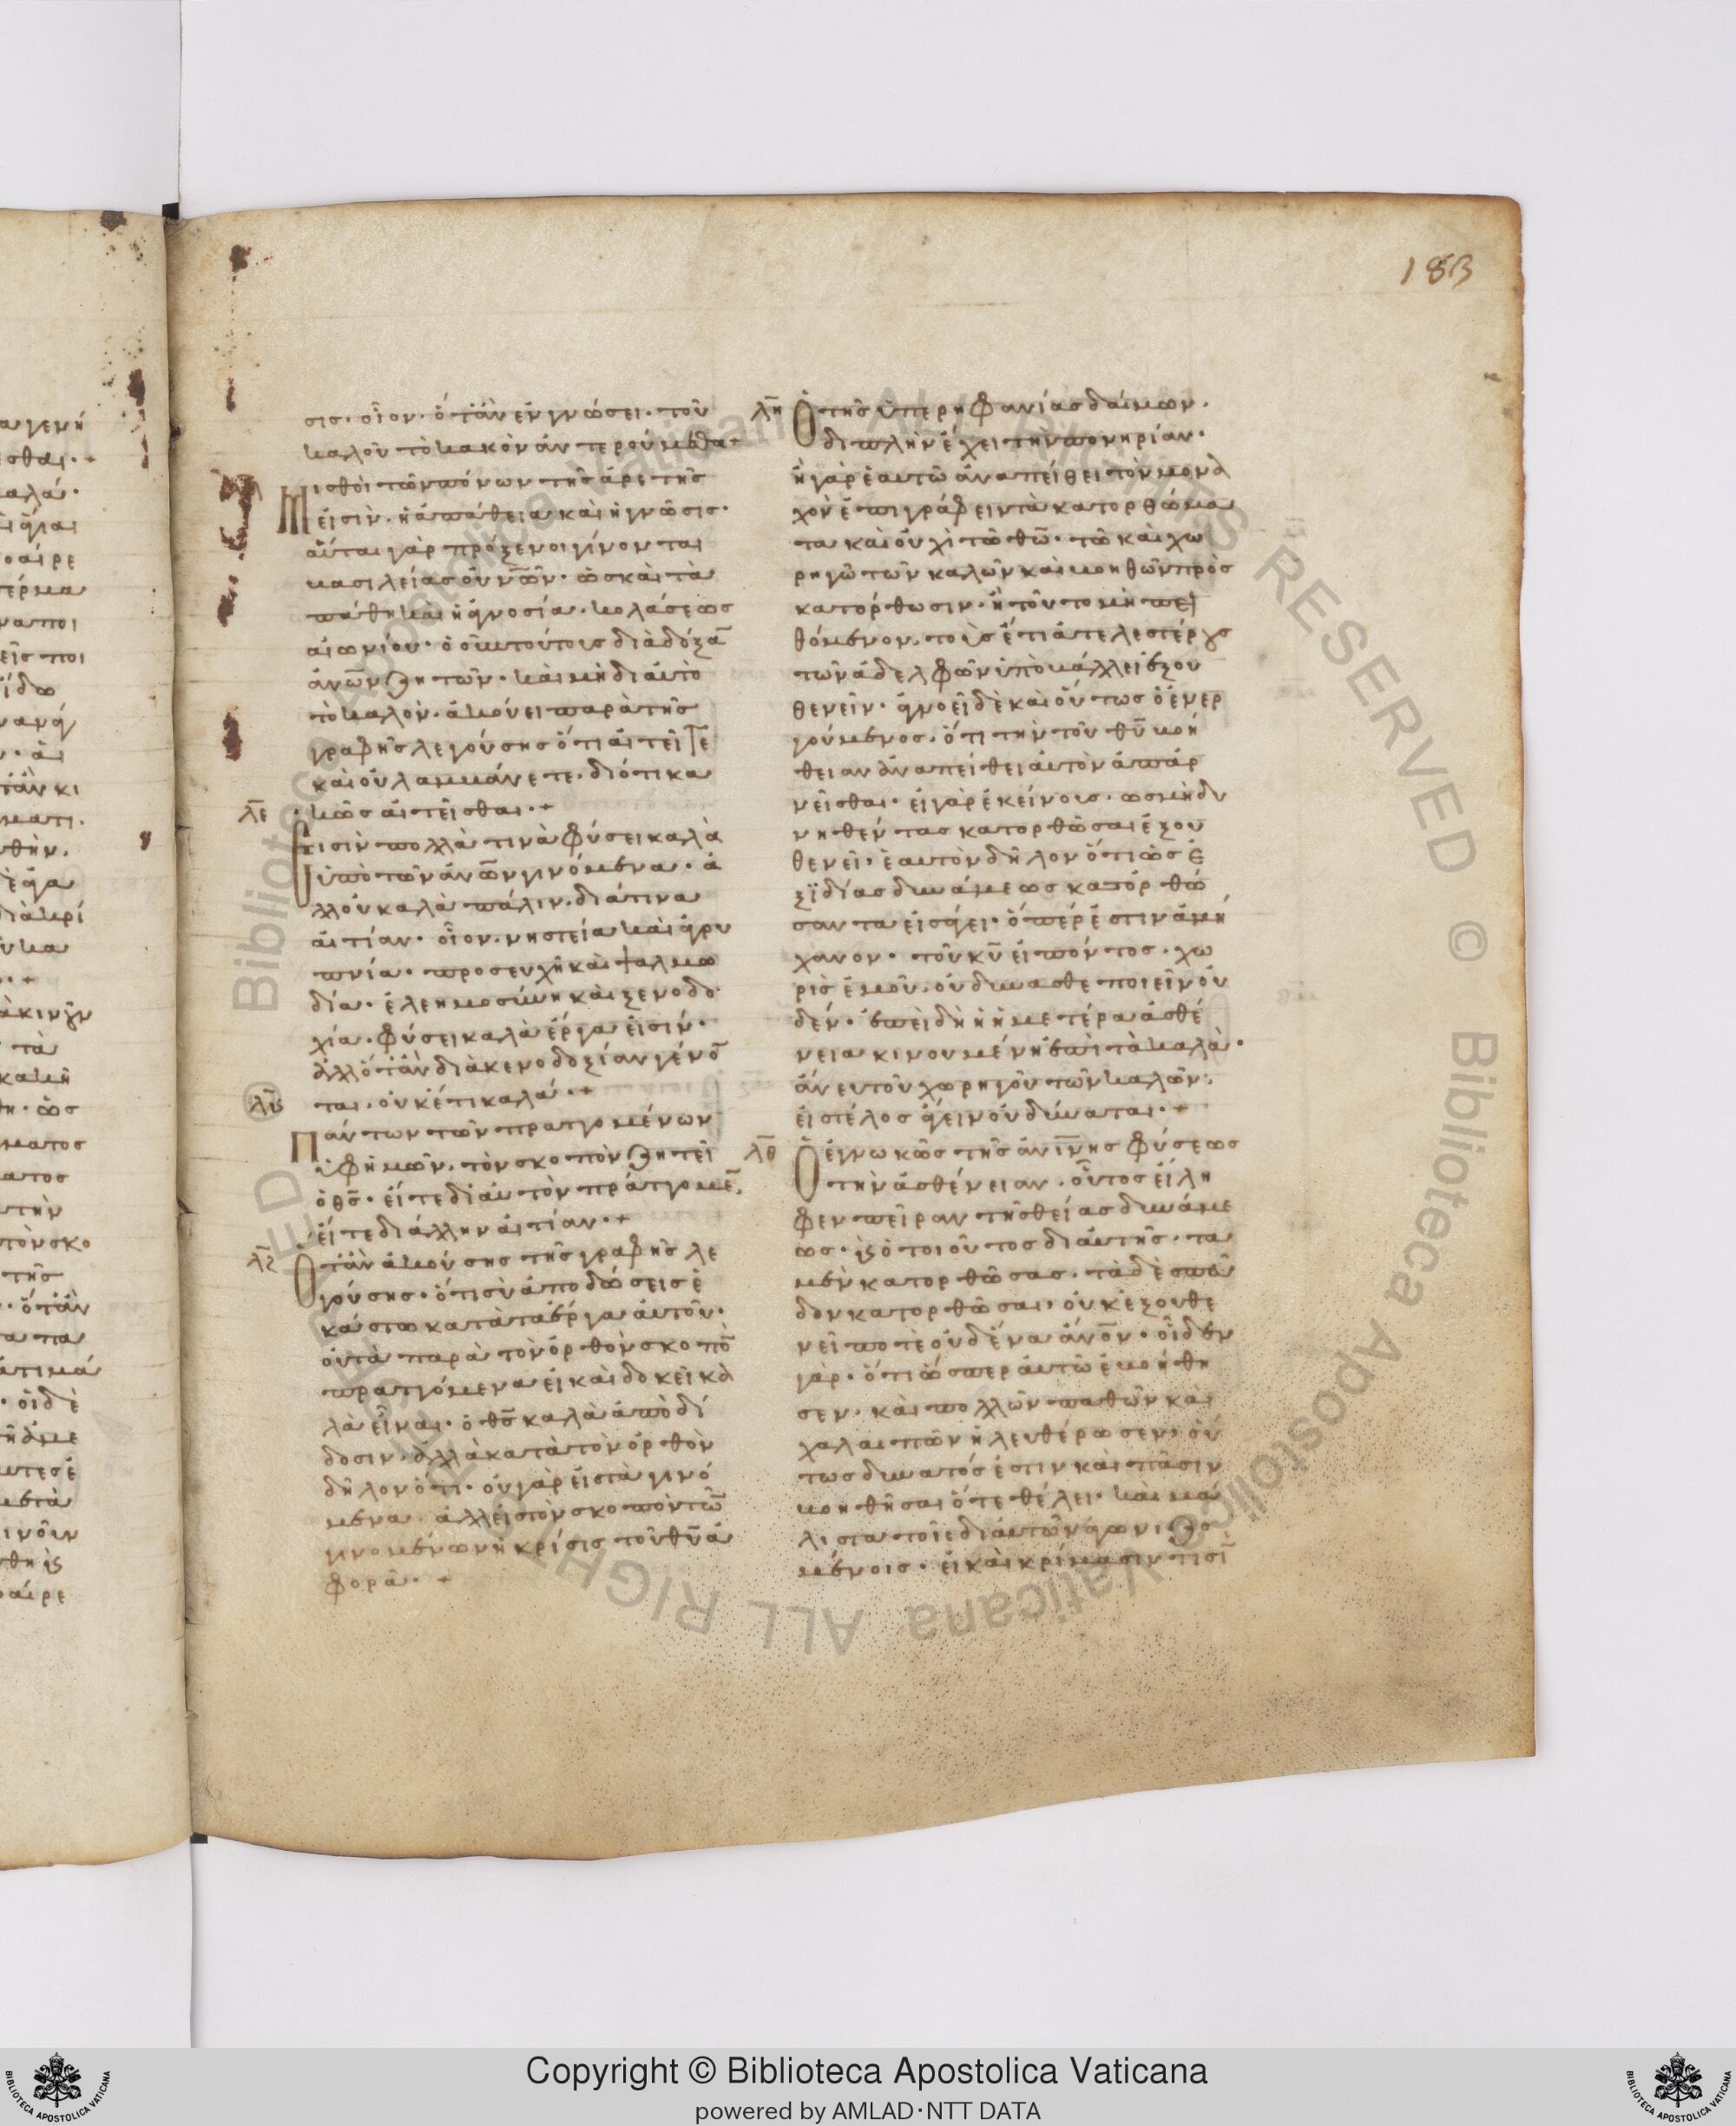 183
σις· οἷον· ὅτἂν ἐν γνώσει· τοῦ
καλοῦ τὸ κακὸν ἀντερούμεθα·+
Μισθοὶ τῶν πόνων τῆς ἀρετῆς
εἰσὶν· ἡ ἀπάθεια καὶ ἡ γνῶσις·
αὗται γὰρ πρόξενοι γίνονται
βασιλείας οὐνῶν· ὡς καὶ τὰ
πάθη καὶ ἡ ἀγνοσία· κολάσεως
αἰωνίου· ὁ οὖν τούτους διὰ δόξα̅
ἀνῶν ζητῶν· καὶ μὴ δι' αὐτὸ
τὸ καλὸν· ἀκούει παρὰ τῆς
γραφῆς λεγούσης ὅτι αἰτεῖτε
καὶ οὐ λαμβάνετε· διότι κα
λε κῶς αἰτεῖσθαι·+
Εἰσὶν πολλὰ τινὰ φύσει καλὰ
ὑπὸ τῶν ἀνῶν γινόμενα· ἀ
λλ' οὐ καλὰ πάλιν· διά τινα
αἰτίαν· οἷον· νηστεία καὶ ἀγρυ
πνία· προσευχὴ καὶ ψαλμω
δία· ἐλεημοσύνη καὶ ξενοδο
χία· φύσει καλὰ ἔργα εἰσίν·
ἀλλ' ὅτἂν διὰ κενοδοξίαν γένο̅
λϛ ται· οὐκέτι καλά·+
Πάντων τῶν πραττομένων
ὑφ' ἡμῶν· τὸν σκοπὸν ζητεῖ
ὁ θς· εἴτε δι' αὐτὸν πράττομε̅·
εἴτε δι' ἄλλην αἰτίαν·+
λζ Ὅτἂν ἀκούσης τῆς γραφῆς λε
γούσης· ὅτι σὺ ἀποδώσεις ἑ
κάστω κατὰ τὰ ἔργα αὐτοῦ·
οὐ τὰ παρὰ τὸν ὀρθὸν σκοπο̅
πραττόμενα εἰ καὶ δοκεῖ κα
λὰ εἶναι· ὁ θς καλὰ ἀποδί
δοσιν· ἀλλὰ κατὰ τὸν ὀρθὸν
δῆλον ὅτι· οὐ γὰρ εἰς τὰ γινό
μενα· ἀλλ' εἰς τὸν σκοπὸν τῶ̅
γινομένων ἡ κρίσις τοῦ θυ ἀ
φορᾶ·+
λη Ὁ τῆς ὑπερηφανίας δαίμων·
διπλὴν ἔχει τὴν πονηρίαν·
ἢ γὰρ ἑαυτῶ ἀναπείθει τὸν μονα
χὸν ἐπιγράφειν τὰ κατορθώμα
τα καὶ οὐχὶ τῶ θω· τῶ καὶ χω
ρηγῶ τῶν καλῶν καὶ βοηθῶν πρὸς
κατόρθωσιν· ἢ τοῦτο μὴ πει
θόμενον· τοὺς ἔτι ἀτελεστέρους
τῶν ἀδελφῶν ὑποβάλλει ἐξου
θενεῖν· ἀγνοεῖ δὲ καὶ οὕτως ὁ ἐνερ
γούμενος· ὅτι τὴν τοῦ θυ βοή
θειαν ἀναπείθει αὐτὸν ἀπαρ
νεῖσθαι· εἰ γὰρ ἐκείνους· ὡς μὴ δυ
νηθέντας κατορθῶσαι ἐξου
θενεῖ· ἑαυτὸν δῆλον ὅτι ὡς ἐ
ξ ἰδίας δυνάμεως κατορθώ
σαντα εἰσάγει· ὅπερ ἐστιν ἀμή
χανον· τοῦ κυ εἰπόντος· χω
ρὶς ἐμοῦ· οὐ δύνασθε ποιεῖν οὐ
δέν· ἐπειδὴ ἡ ἡμετέρα ἀσθέ
νεια κινουμένη ἐπὶ τὰ καλὰ·
ἄνευ τοῦ χωρηγοῦ τῶν καλῶν·
εἰς τέλος ἄγειν οὐ δύναται·+
λθ Ὁ ἐγνωκῶς τῆς ἀνίνης φύσεως
τὴν ἀσθένειαν· οὗτος εἴλη
φεν πεῖραν τῆς θείας δυνάμε
ως· καὶ ὁ τοιοῦτος δι' αὐτῆς· τὰ
μὲν κατορθῶσας· τὰ δὲ σπεύ
δων κατορθῶσαι· οὐκ ἐξουθε
νεῖ ποτὲ οὐδένα ἀνον· οἶδεν
γὰρ· ὅτι ὥσπερ αὐτῶ ἐβοήθη
σεν· καὶ πολλῶν παθῶν καὶ
χαλαιπῶν ἠλευθέρωσεν· οὕ
τως δυνατός ἐστιν καὶ πᾶσιν
βοηθῆσαι ὅτε θέλει· καὶ μά
λιστα τοῖς δι' αὐτῶν ἀγωνιζο
μένοις· εἰ καὶ κρίμασιν τισὶ̅
Copyright © Biblioteca Apostolica Vaticana
powered by AMLAD·NTT DATA